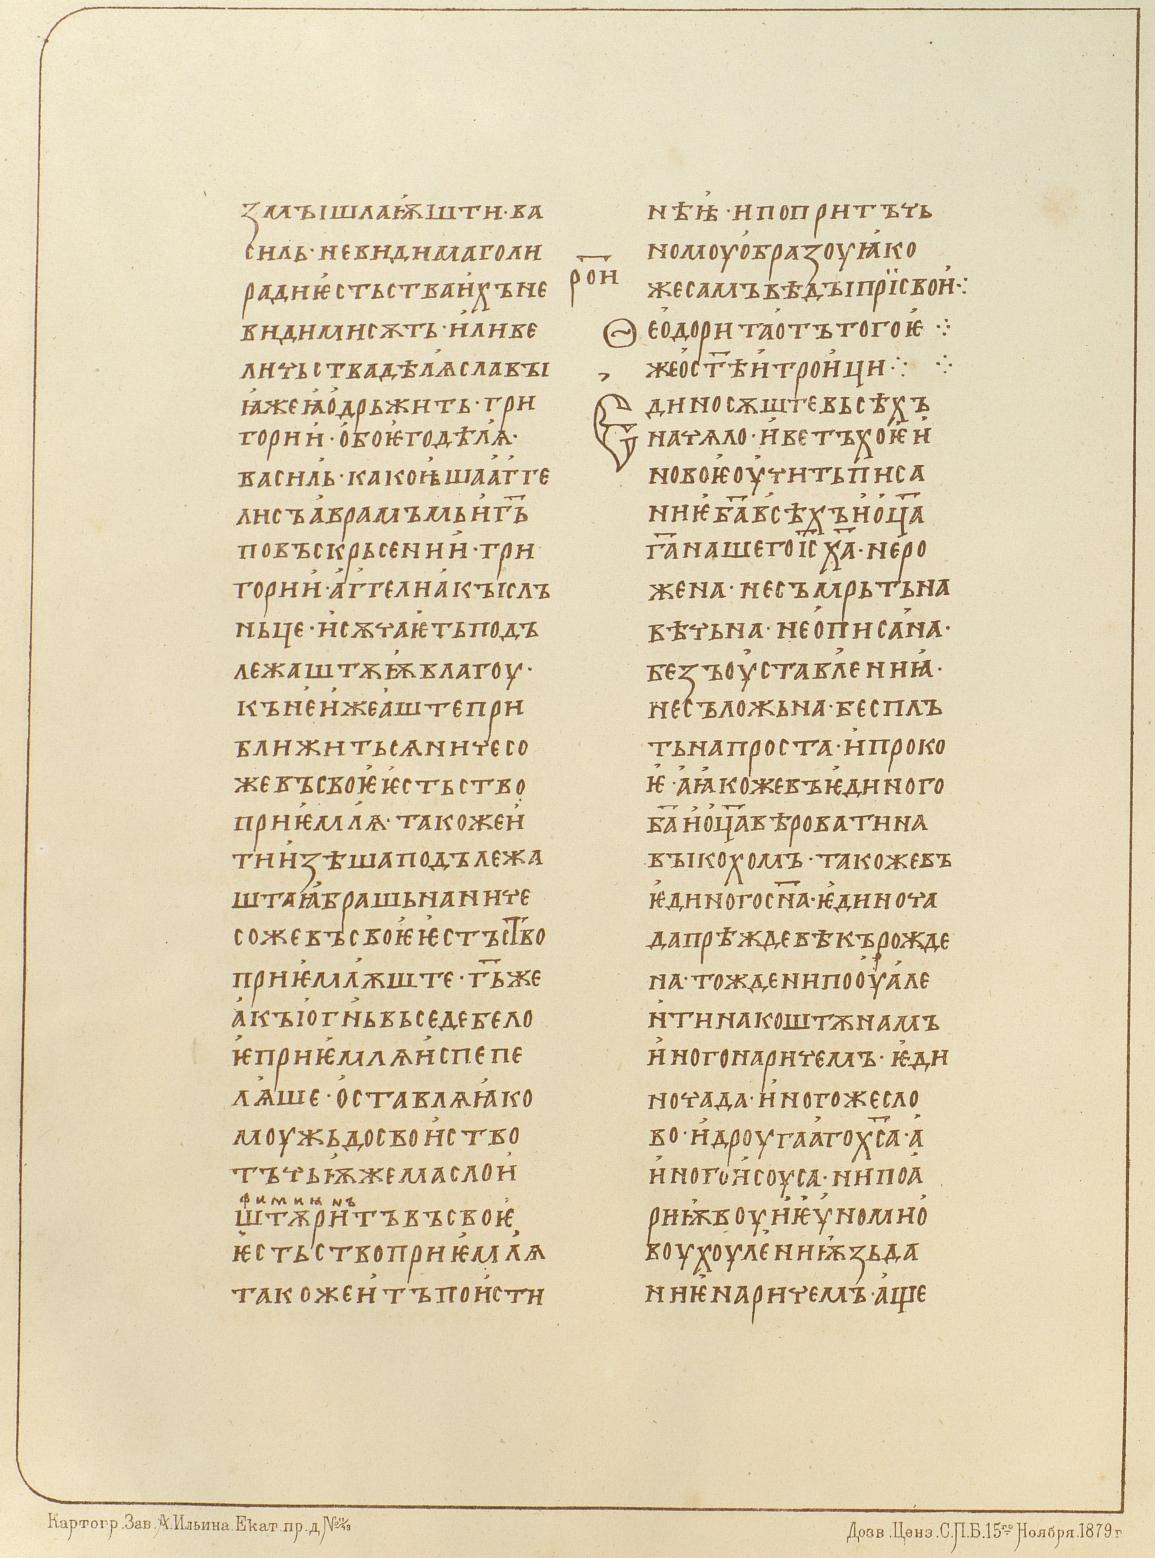 ꙁмъішлаѭшти·ва
силь·невидимаголи
радиѥстьстваихъне
видимисѫть·иливе
личьствадѣлѧславъі
ꙗжеѭодрьжить·гри
горий·обоѥгодѣлѧ·
василь·какоѩшааг҅ге
лисъаврамъмьнг҃ь
повъскрьсении·гри
горий·аггелиакъіслъ
ньце·исѫчаѥтьподъ
лежаштѫѭблагоу·
кънеижеаштепри
ближитьсѧничесо
жевъсвоѥѥстьство
приѥмлѧ·такожеи
тииꙁѣшаподълежа
штаꙗбрашьнаниче
сожевъсвоѥѥстъст҃во
приѥмлѫште·г҃ьже
акъіогньвьседебело
ѥприѥмлѧиспепе
лѧше·оставлѧꙗко
моужьдосвоиство
тъчьѭжемаслои
фимиꙗнъ
штѫритъвъсвоѥ
ѥстьствоприѥмлѧ
такожеитъпоисти
рон҃
нѣѩ·ипопритъчь
номоуобраꙁоуꙗко
жесамъвѣдъіпрїісвои⁘
Ѳеодоритаотътогоѥ ⁘
жеост҃ѣитроици⁘ ⁘
Єдиносѫштевьсѣхъ
начѧло·иветъхоѥи
новоѥоучитьписа
ниѥб҃авсѣхъиоц҃а
г҃анашегоіс҃х҃а·неро
жена·несъмрьтьна
вѣчьна·неописана·
беꙁъоуставлениꙗ·
несъложьна·бесплъ
тьнапроста·ипроко
ѥ·аꙗкожевъѥдиного
б҃аиоц҃авѣроватина
въікохомъ·такожевъ
ѥдиногосн҃а·ѥдиноча
дапрѣждевѣкърожде
на·тожденипооуале
нтинакоштѫнамъ
иногонаричемъ·ѥди
ночада·иногожесло
во·идроугаагохс҃а·а
иногоисоуса·нипоа
риѭвоуиѥуномио
воухоулениѭꙁьда
ниѥнаричемъ·аще
Картогр.Зав.А.Ильина.Екат.пр.д.№
Дозв.Ценз.С.П.Б.15го Ноября.1879г